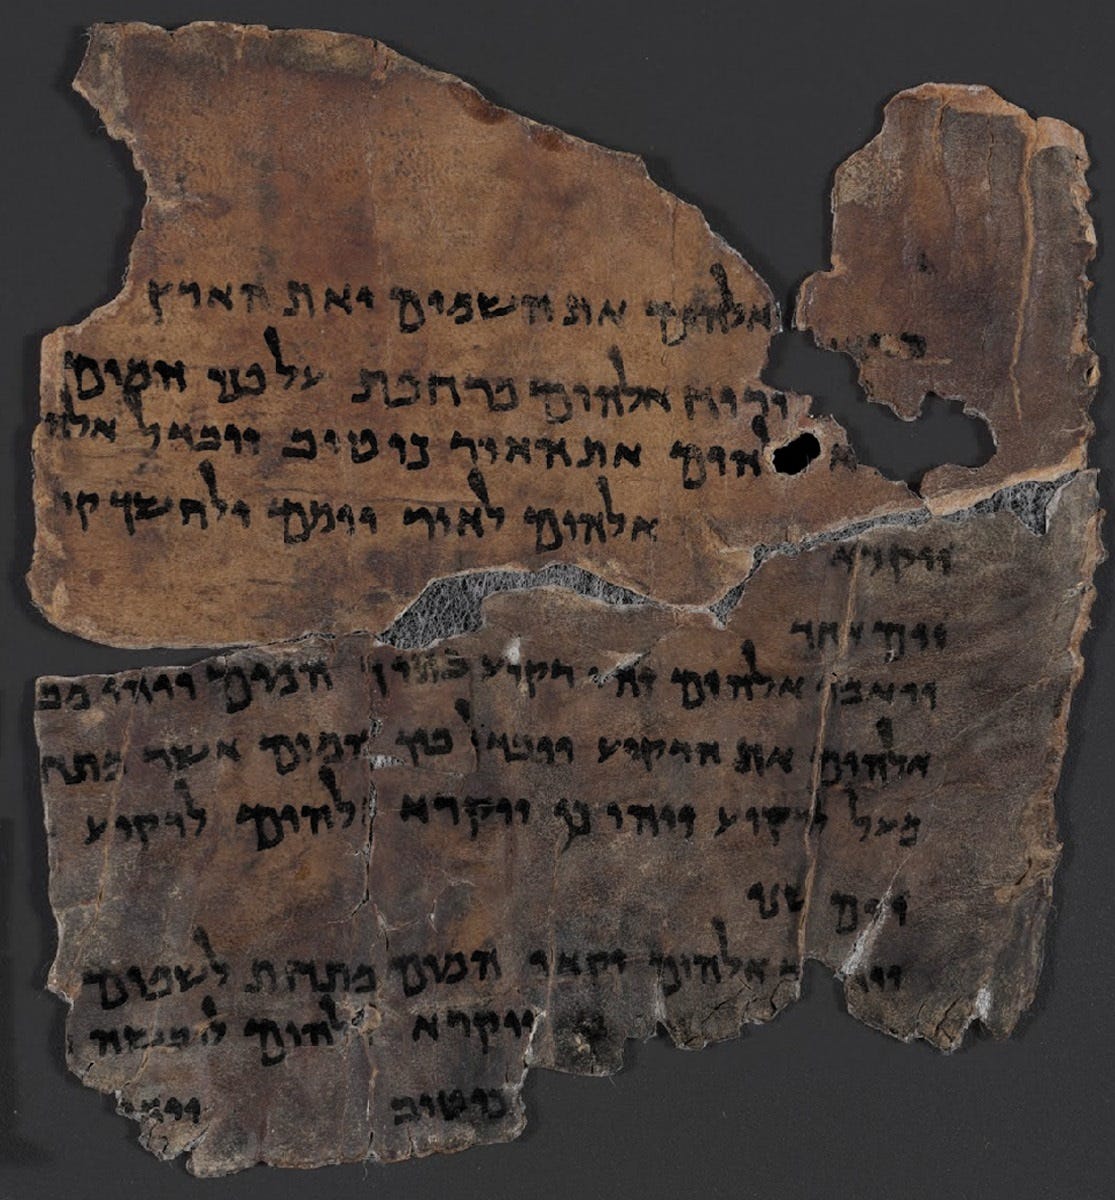 אלהים את השמים ואת הארץ
ורוח אלהים מרחפת על פני המים
אלהים את האור כי טוב ויבדל אלהי
ויקרא אלהים לאור יומם ולחשך קר
יום אחד
ויאמר אלהים יהי רקיע בתוך המים ויהי מב
אלהים את הרקיע ויבדל בין המים אשר מתח
מעל לרקיע ויהי כן ויקרא אלהים לרקיע
יום שני
אלהים יקוו המים מתחת לשמים
ויקרא אלהים ליבשה
כי טוב